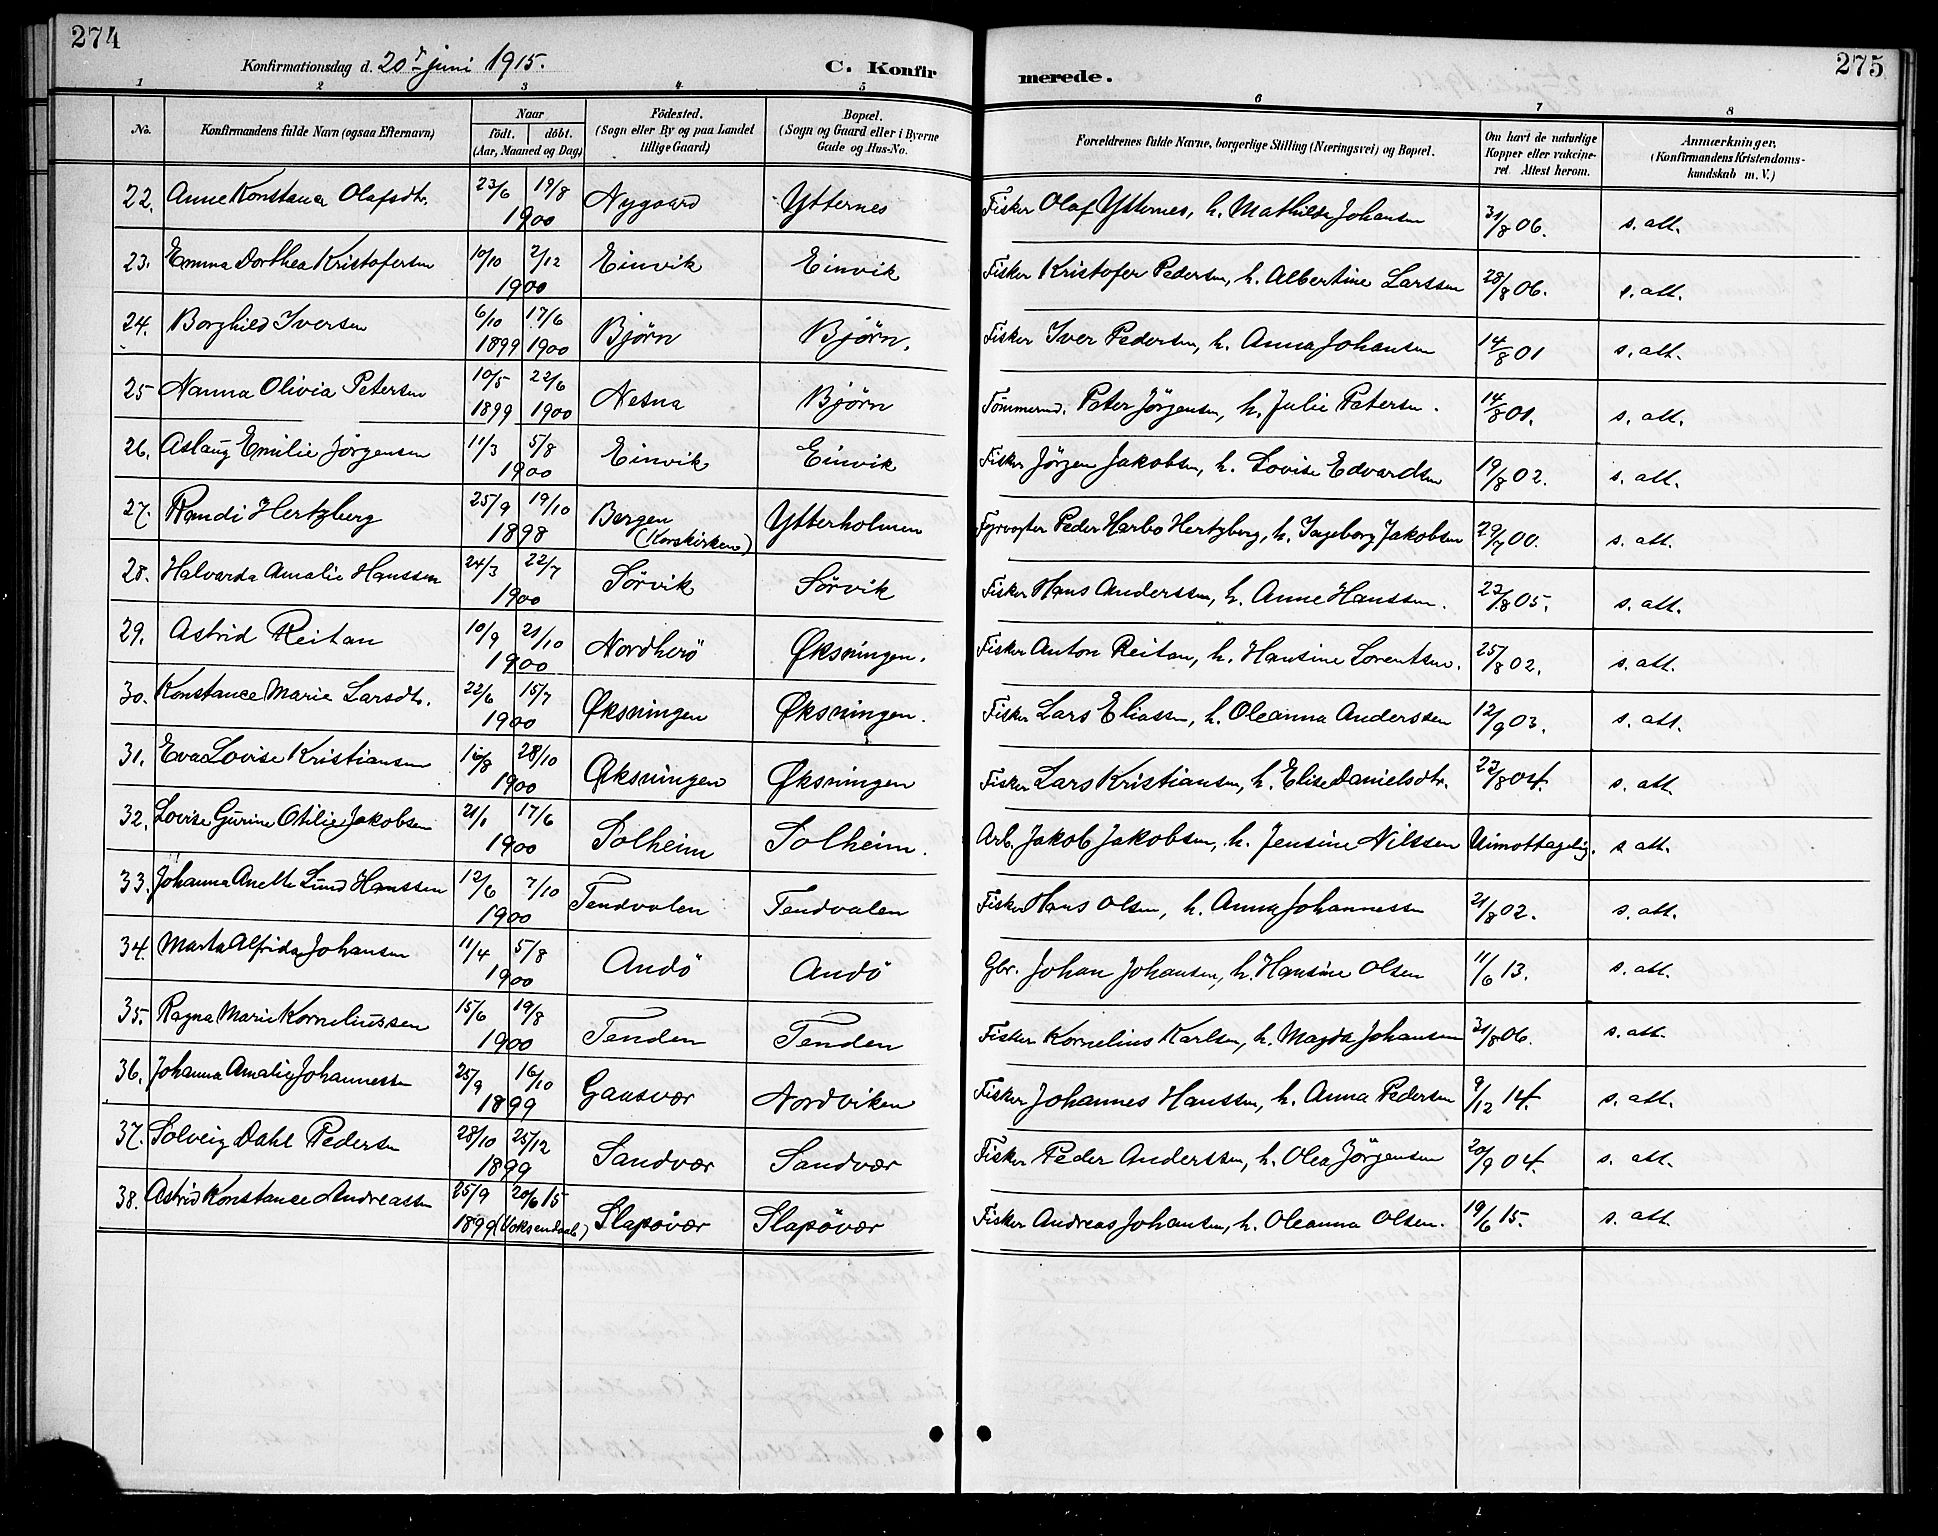 274
Konfirmationsdag d. 20de juni 1915.
C. Konfir
merede.
275
1 2 3 4 5 6 7 8
No.
Konfirmandens fulde Navn (ogsaa Efternavn)
Naar
födt. döbt.
(Aar, Maaned og Dag)
Födested.
(Sogn eller By og paa Landet
tillige Gaard)
Bopæl.
(Sogn og Gaard eller i Byerne
Gade og Hus-No.
Forældrenes fulde Navne, borgerlige Stilling (Næringsvei) og Bopæl.
Om havt de naturlige
Kopper eller vakcine-
ret. Attest herom.
Anmærkninger,
(Konfirmandens Kristendoms-
kundskab m. V.)
22. Anne Konstance Olafsdtr. 23/6 19/8 1900 Nygaard Ytternes Fisker Olaf Ytternes, h. Mathilde Johansen 31/8 06. s. att.
23. Emma Dorthea Kristofersen 10/10 2/12 1900 Einvik Einvik Fisker Kristofer Pedersen, h. Albertine Larssen 28/8 06. s. att.
24. Borghild Iversen 6/10 1899 17/6 1900 Bjørn Bjørn. Fisker Iver Pedersen, h. Anna Johansen 14/8 01 s. att.
25 Nanna Olivia Petersen 10/5 1899 22/6 1900 Nesna Bjørn Tömmermd. Peter Jörgensen, h. Julie Petersen. 14/8 01. s. att.
26. Aslaug Emilie Jörgensen 11/3 5/8 1900 Einvik Einvik Fisker Jörgen Jakobsen, h. Lovise Edvardsen 19/8 02. s. att.
27. Randi Hertzberg 25/9 19/10 1898 Bergen (Korskirken) Ytterholmen Fyrvogter Peder Harbo Hertzberg, h. Ingeborg Jakobsen 29/7 00. s. att.
28. Halvarda Amalie Hanssen 24/3 22/7 1900 Sørvik Sørvik Fisker Hans Anderssen, h. Anne Hanssen. 23/8 05. s. att.
29. Astrid Reitan 10/9 21/10 1900 Nordherö Øksningen. Fisker Anton Reitan, h. Hansine Lorentsen. 25/8 02. s. att.
30. Konstance Marie Larsdtr. 22/6 15/7 1900 Øksningen Øksningen. Fisker Lars Eliassen, h. Oleanna Anderssen 12/9 03. s. att.
31. Eva Lovise Kristiansen 16/8 28/10 1900 Øksningen Øksningen Fisker Lars Kristiansen, h. Elise Danielsdtr. 23/8 04. s. att.
32. Lovise Gurine Otilie Jakobsen 21/1 17/6 1900 Solheim Solheim. Arb. Jakob Jakobsen, h. Jensine Nilssen Uimottagelig. s att.
33. Johanna Anette Lund Hanssen 12/6 7/10 1900 Tendvalen Tendvalen Fisker Hans Olsen, h. Anna Johannessen 21/8 02. s. att.
34. Marta Alfrida Johansen 11/4 5/8 1900 Andö Andö Gbr. Johan Johansen, h. Hansine Olsen 11/6 13. s. att.
35. Ragna Marie Korneliussen 15/6 19/8 1900 Tenden Tenden Fisker Kornelius Karlsen, h. Magda Johansen 31/8 06. s. att.
36. Johanna Amalie Johannessen 25/9 16/10 1899 Gaasvær Nordviken Fisker Johannes Hanssen, h. Anna Pedersen 9/12 14. s. att.
37. Solveig Dahl Pedersen 28/10 25/12 1899 Sandvær Sandvær Fisker Peder Anderssen, h. Olea Jörgensen 20/9 04. s. att.
38. Astrid Konstance Andreassen 25/9 1899 20/6 15 (Voksendaab) Slapövær Slapövær Fisker Andreas Johansen, h. Oleanna Olsen. 19/6 15. s. att.